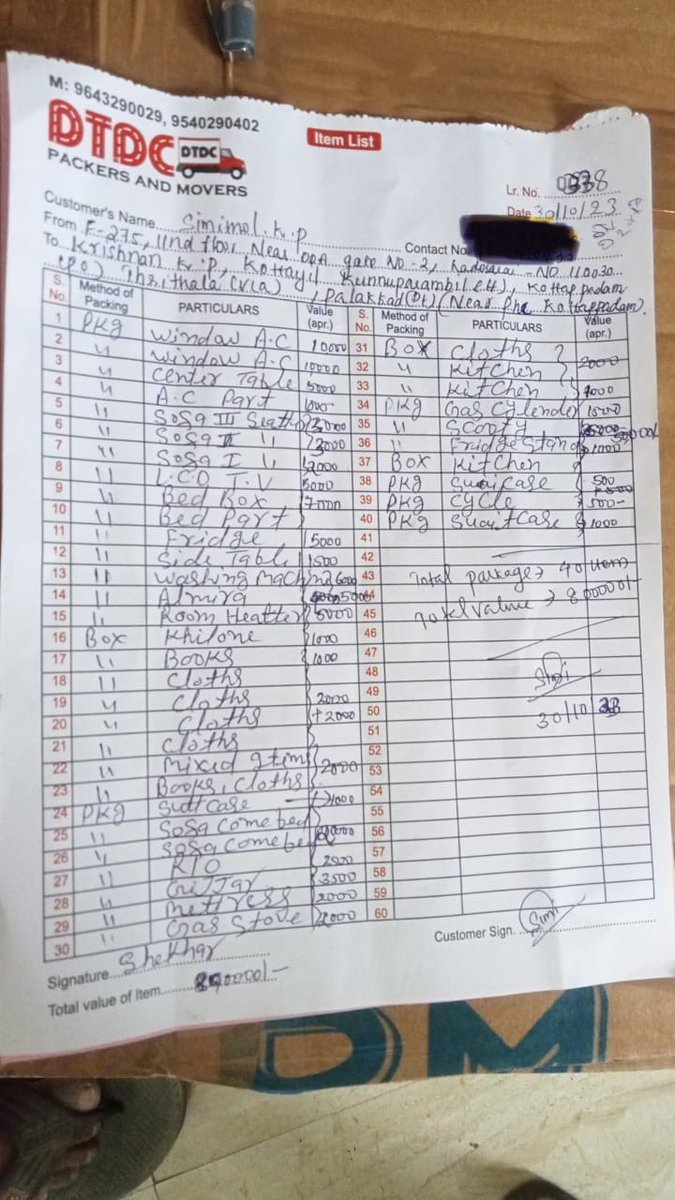 M: 9643290029, 9540290402
DTDC
DTDC
PACKERS AND MOVERS
Item List
Lr. No. 0338
Date 30/10/23
Customer's Name Simimol. K.P
Contact No.
From F-275, IInd floor, Near DDA gate NO-2, Ladosarai - ND 110030
To Krishnan K.P, Kottayil Kunnuparambil (H), Kottappadam
(PO) Thrithala (via), Palakkad (Dt) (Near Phc Kottappadam).
S. No. Method of Packing PARTICULARS Value (apr.)
1 PKg Window A.C 10000
2 " Window A.C 10000
3 " Center Table 5000
4 " A.C Part 1000
5 " Sofa III Seatter 3000
6 " Sofa II " 3000
7 " Sofa I " 2000
8 " L.C.D T.V 5000
9 " Bed Box 7000
10 " Bed Part
11 " Fridge 15000
12 " Side Table 1500
13 " Washing Machin 6000
14 " Almira 5000
15 " Room Heatter 5000
16 Box Khilone 1000
17 " Books 1000
18 " Cloths
19 " Cloths 2000
20 " Cloths +2000
21 " Cloths
22 " Mixed Item 2000
23 " Books, Cloths
24 PKg Suttcase 1000
25 " Sofa come bed
26 " Sofa come bed
27 " R/O 2000
28 " Guittar 3500
29 " Mettress 2000
30 " Gas Stove 2000
S. No. Method of Packing PARTICULARS Value (apr.)
31 Box Cloths
32 " Kitchen 2000
33 " Kitchen 1000
34 PKg Gas Cylender 1500
35 " Scooty 50000/-
36 " Fridge Stand 1000
37 Box Kitchen
38 PKg Suaicase 500
39 PKg Cycle 500-
40 PKg Suaitcase 1000
41
42
43 Total package → 40 Item
44
45 Total Value → 800000/-
46
47
48
49
50 30/10/23
51
52
53
54
55
56
57
58
59
60
Signature Shekhar
Customer Sign. Simi
Total value of Item 800000/-